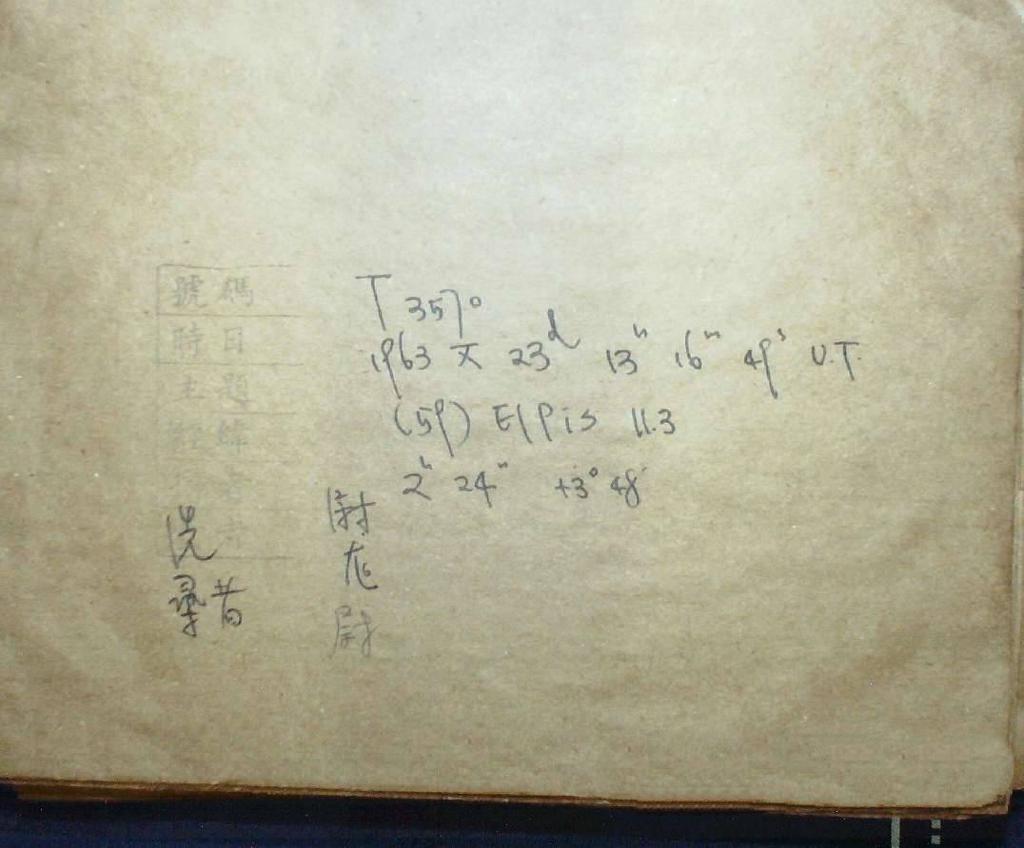 號碼
時日
主題
經緯
T 3570
1963 X 23ᵈ 13ʰ 16ᵐ 49ˢ U.T.
(59) Elpis 11.3
2ʰ 24ᵐ +3° 48'
洗